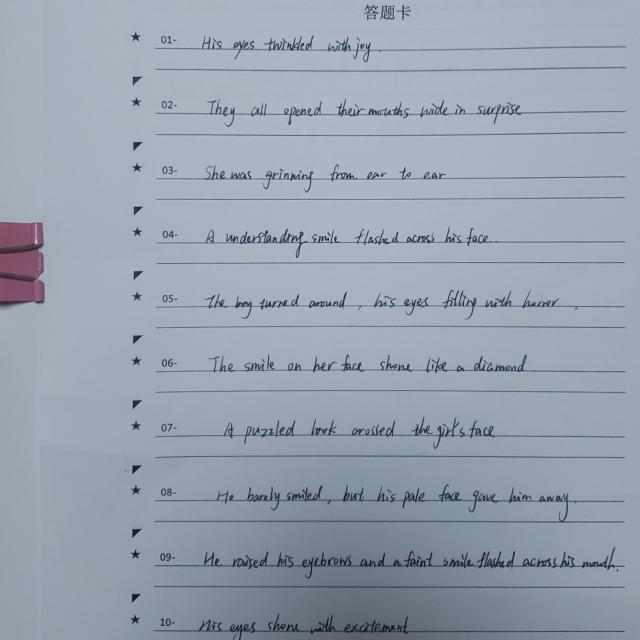 答题卡
★ 01- His eyes twinkled with joy.
★ 02- They all opened their mouths wide in surprise
★ 03- She was grinning from ear to ear
★ 04- A understanding smile flashed across his face.
★ 05- The boy turned around, his eyes filling with horror.
★ 06- The smile on her face shone like a diamond
★ 07- A puzzled look crossed the girl's face
★ 08- He barely smiled, but his pale face gave him away.
★ 09- He raised his eyebrows and a faint smile flashed across his mouth.
★ 10- His eyes shone with excitement